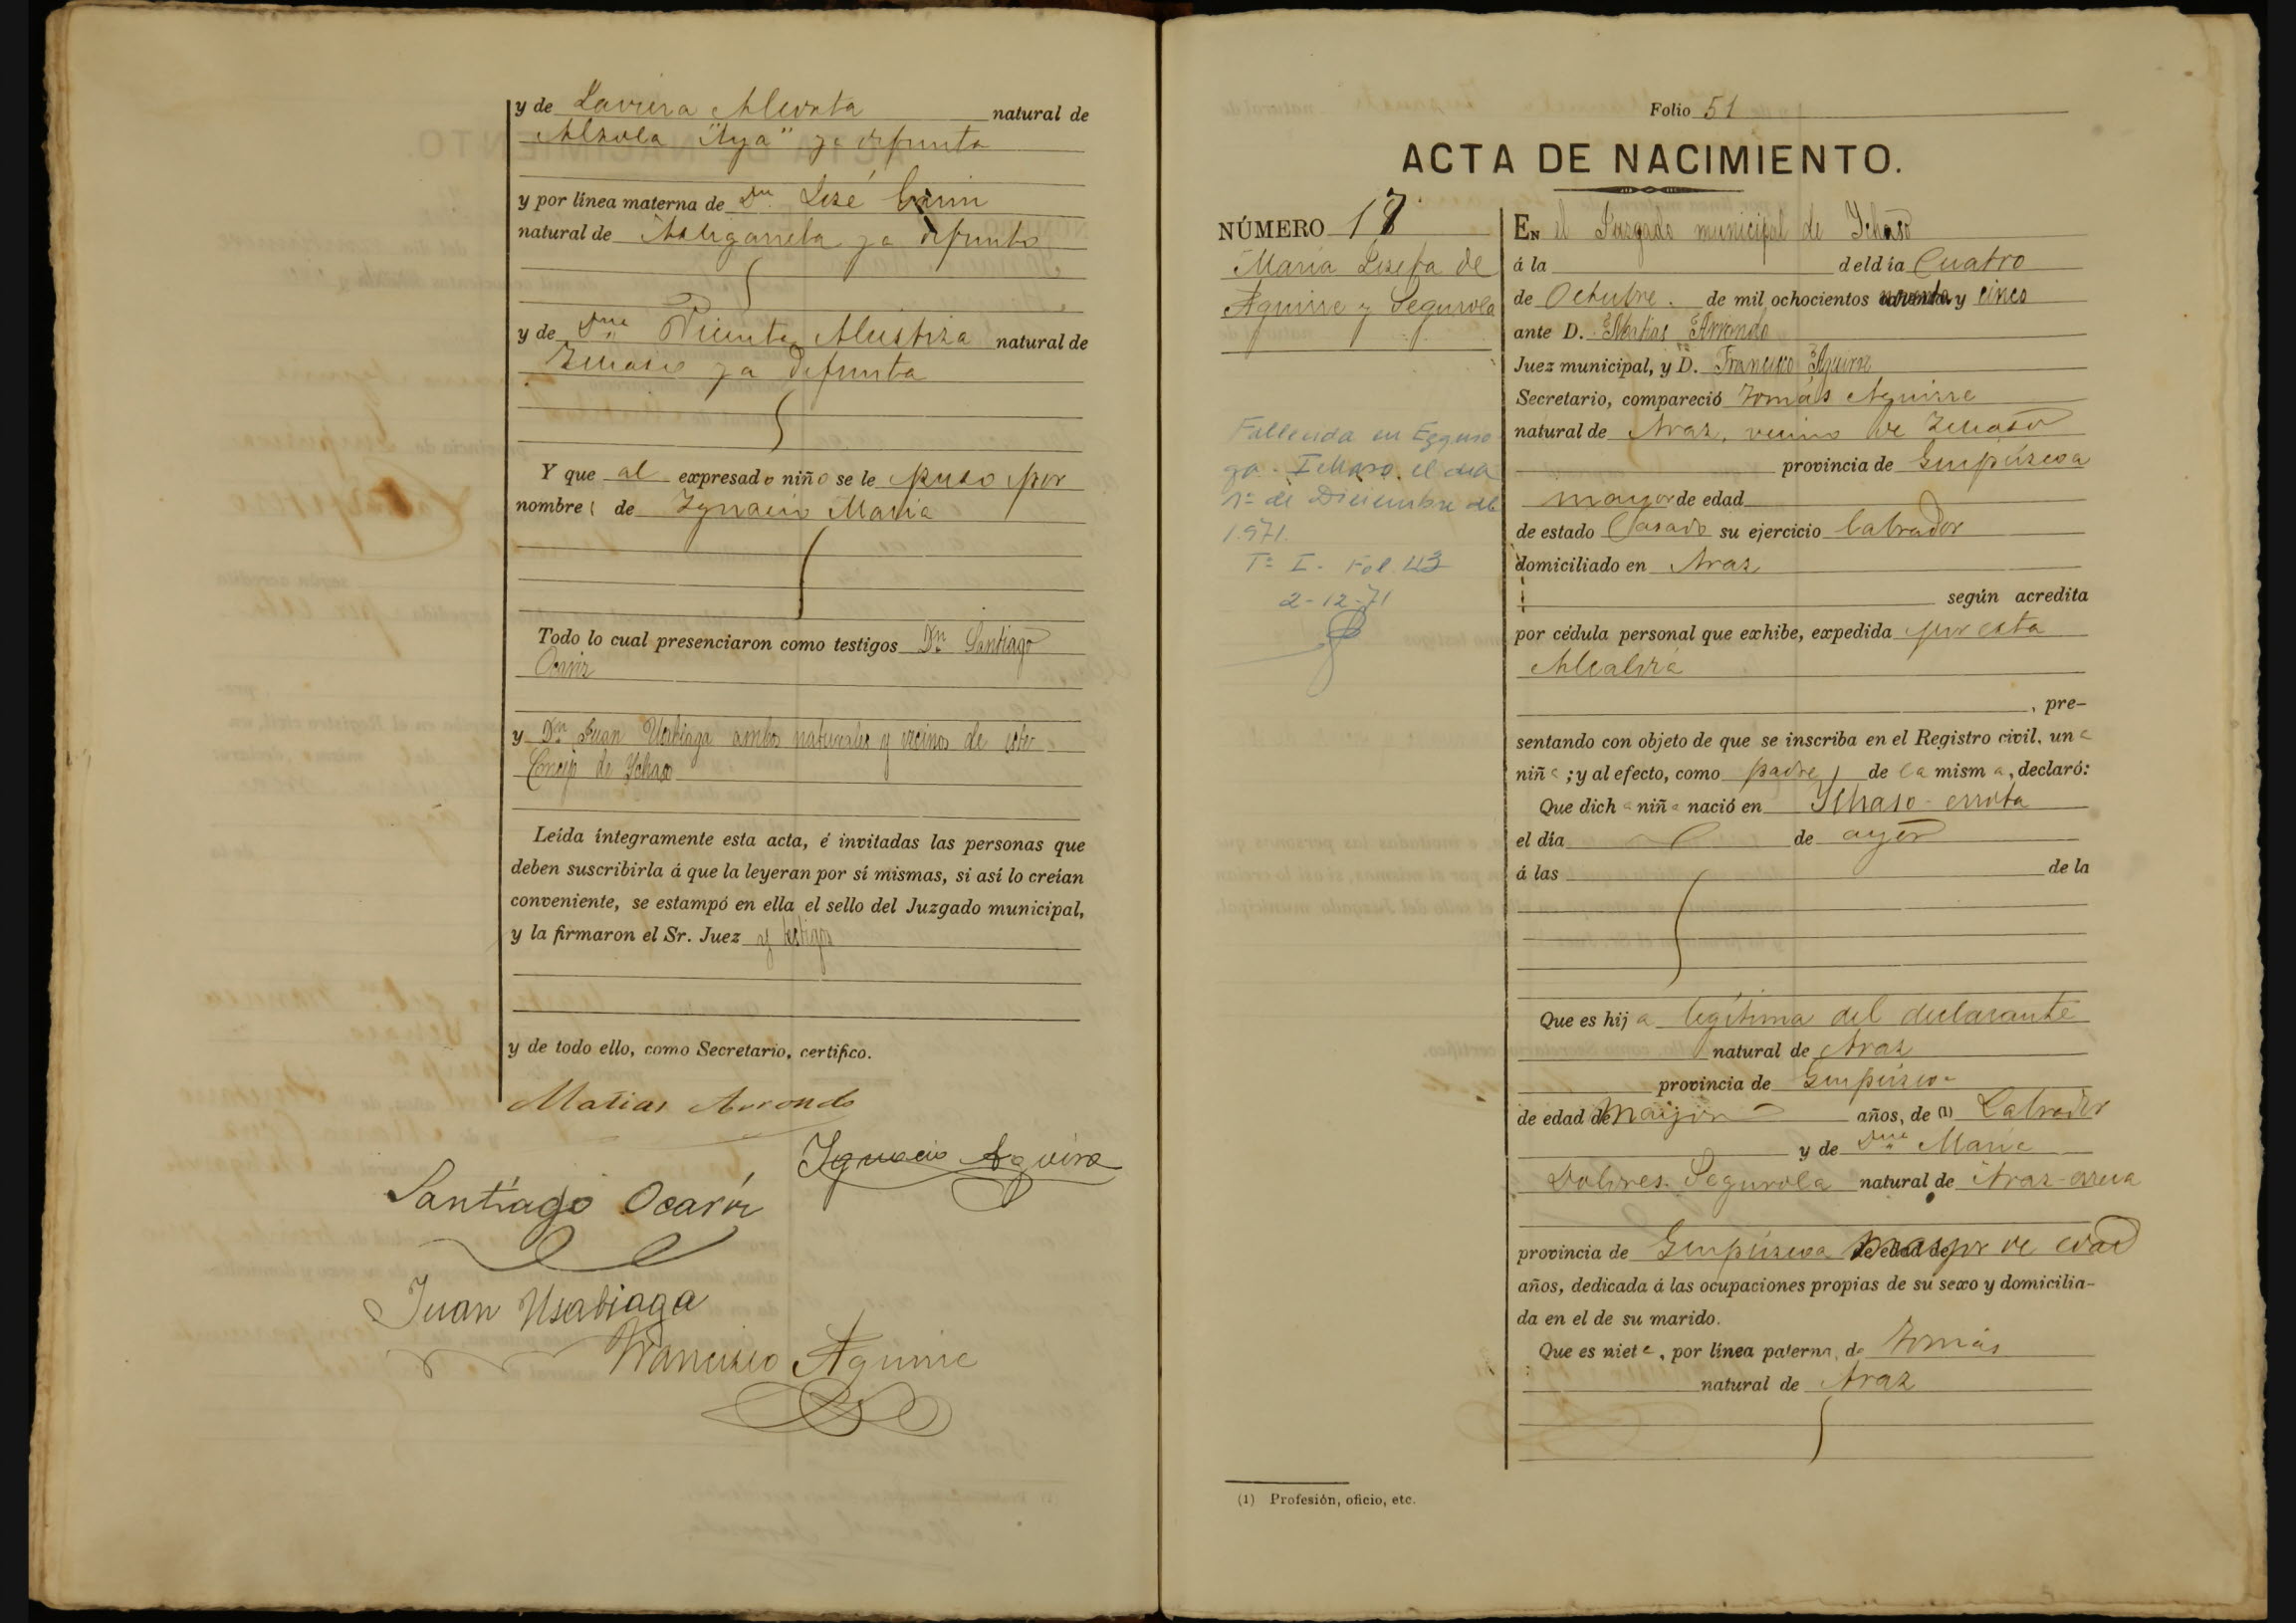 y de Javiera Alcorta natural de
Alzola "Aya" ya difunta
y por línea materna de Dn. José
natural de Astigarreta ya difunto
y de Dña Vicenta Alustiza natural de
Ichaso ya difunta
Y que al expresado niño se le puso por
nombre de Ignacio Maria
Todo lo cual presenciaron como testigos Dn. Santiago
Ocariz
y Dn. Juan Usabiaga ambos naturales y vecinos de este
Concejo de Ychaso
Leída íntegramente esta acta, é invitadas las personas que
deben suscribirla á que la leyeran por sí mismas, si así lo creían
conveniente, se estampó en ella el sello del Juzgado municipal,
y la firmaron el Sr. Juez y testigos
y de todo ello, como Secretario, certifico.
Matias Arrondo
Ygnacio Aguirre
Santiago Ocariz
Juan Usabiaga
Francisco Aguirre
Folio 51
ACTA DE NACIMIENTO.
NÚMERO 17
Maria Josefa de
Aguirre y Segurola
Fallecida en
Ichaso, el dia
1º de Diciembre de
1.971.
Tº I. Fol. 43
2-12-71
EN el Juzgado municipal de Ychaso
á la del día Cuatro
de Octubre de mil ochocientos noventa y cinco
ante D. Matias Arrondo
Juez municipal, y D. Francisco Aguirre
Secretario, compareció Tomás Aguirre
natural de Araz, vecino de Ichaso
provincia de Guipúzcoa
mayor de edad
de estado Casado su ejercicio labrador
domiciliado en Araz
según acredita
por cédula personal que exhibe, expedida por esta
Alcaldía
, pre-
sentando con objeto de que se inscriba en el Registro civil, una
niña; y al efecto, como padre de la misma, declaró:
Que dicha niña nació en Ychaso-errota
el día de ayer
á las de la
Que es hija legítima del declarante
natural de Araz
provincia de Guipúzcoa
de edad de mayor años, de (1) Labrador
y de Dña Maria
Dolores Segurola natural de Araz-
provincia de Guipúzcoa de edad de mayor de edad
años, dedicada á las ocupaciones propias de su sexo y domicilia-
da en el de su marido.
Que es nieta, por línea paterna, de Tomás
natural de Araz
(1) Profesión, oficio, etc.